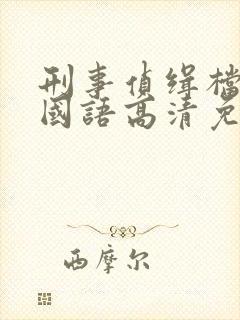 刑事偵缉檔
國語高清免
西摩尔